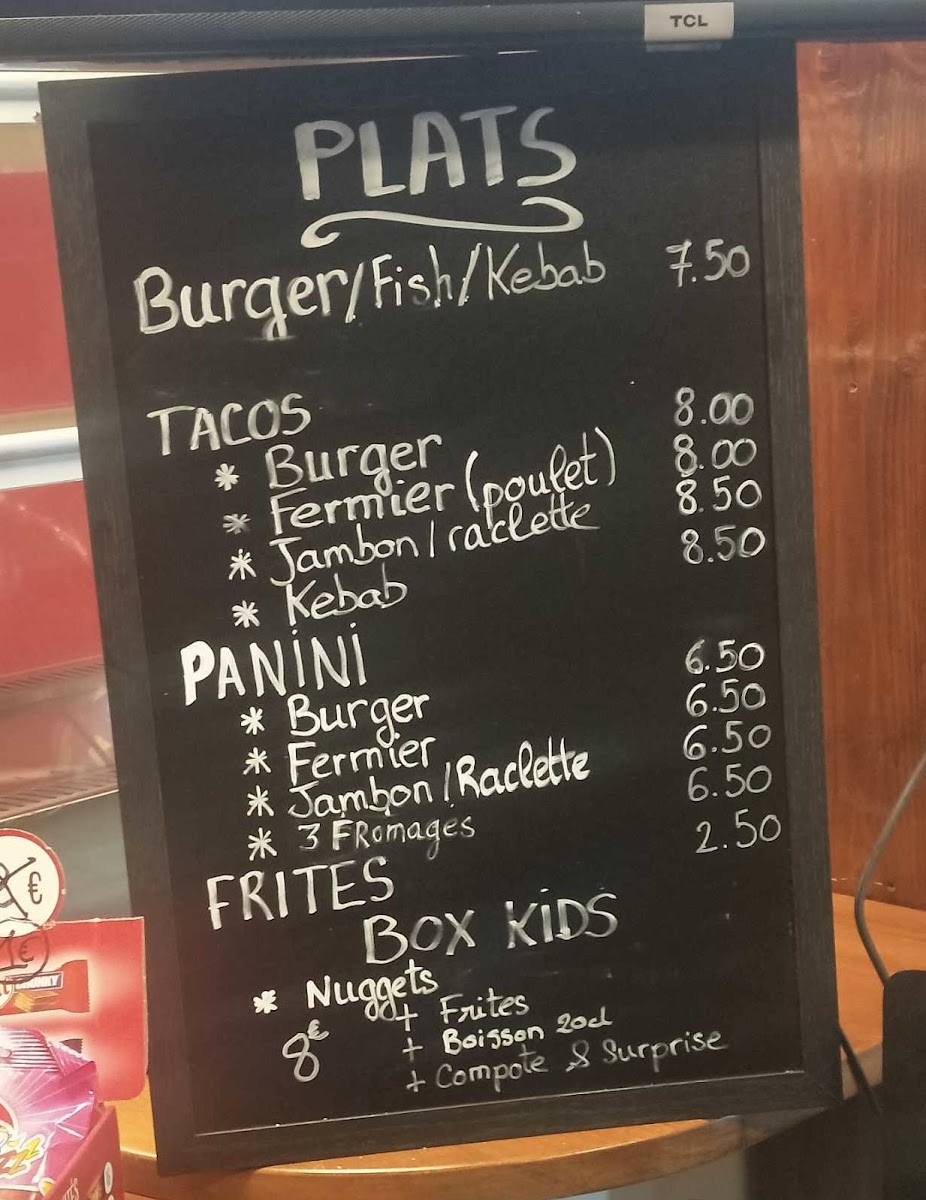 TCL
PLATS
Burger/Fish/Kebab 7.50
TACOS
* Burger 8.00
* Fermier (poulet) 8.00
* Jambon/raclette 8.50
* Kebab 8.50
PANiNi
* Burger 6.50
* Fermier 6.50
* Jambon/Raclette 6.50
* 3 FRomages 6.50
FRITES 2.50
BOX KiDS
* Nuggets
+ Frites
8€ + Boisson 20cl
+ Compote & Surprise
€
1€